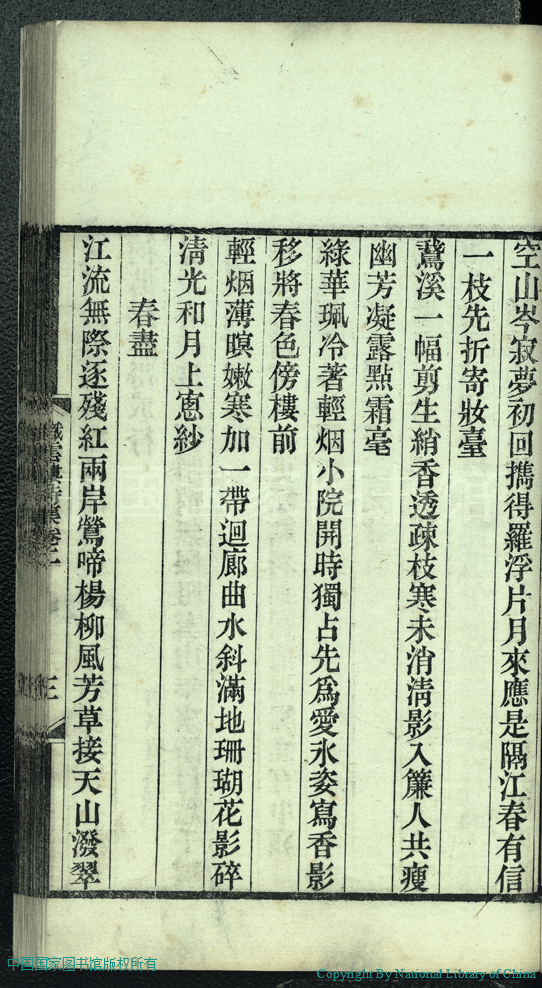 空山岑寂夢初回擕得羅浮片月來應是隔江春有信
一枝先折寄妝臺
鵞溪一幅剪生綃香透疎枝寒未消淸影入簾人共瘦
幽芳凝露點霜毫
綠華珮冷著輕烟小院開時獨占先爲愛氷姿寫香影
移將春色傍樓前
輕烟薄暝嫩寒加一帶迴廊曲水斜滿地珊瑚花影碎
淸光和月上窻紗
春盡
江流無際逐殘紅兩岸鶯啼楊柳風芳草接天山潑翠
雲 詩集卷二
三
中国国家图书馆版权所有
Copyright By National Library of China